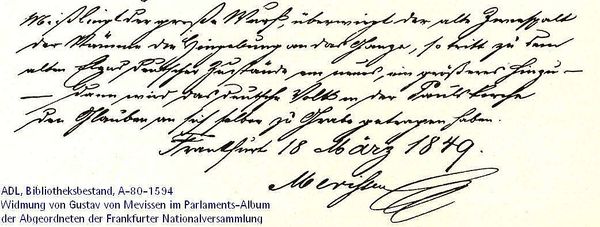 Mißlingt der große Wurf, überwiegt der alte Zwiespalt
der Stämme die Hingebung an das Ganze, so tritt zu dem
alten Elend deutscher Zustände ein neues, ein größeres hinzu –
– dann wird das deutsche Volk in der Paulskirche
den Glauben an sich selber zu Grabe getragen haben.
Frankfurt 18 März 1849.
Mevissen
ADL, Bibliotheksbestand, A-80-1594
Widmung von Gustav von Mevissen im Parlaments-Album
der Abgeordneten der Frankfurter Nationalversammlung